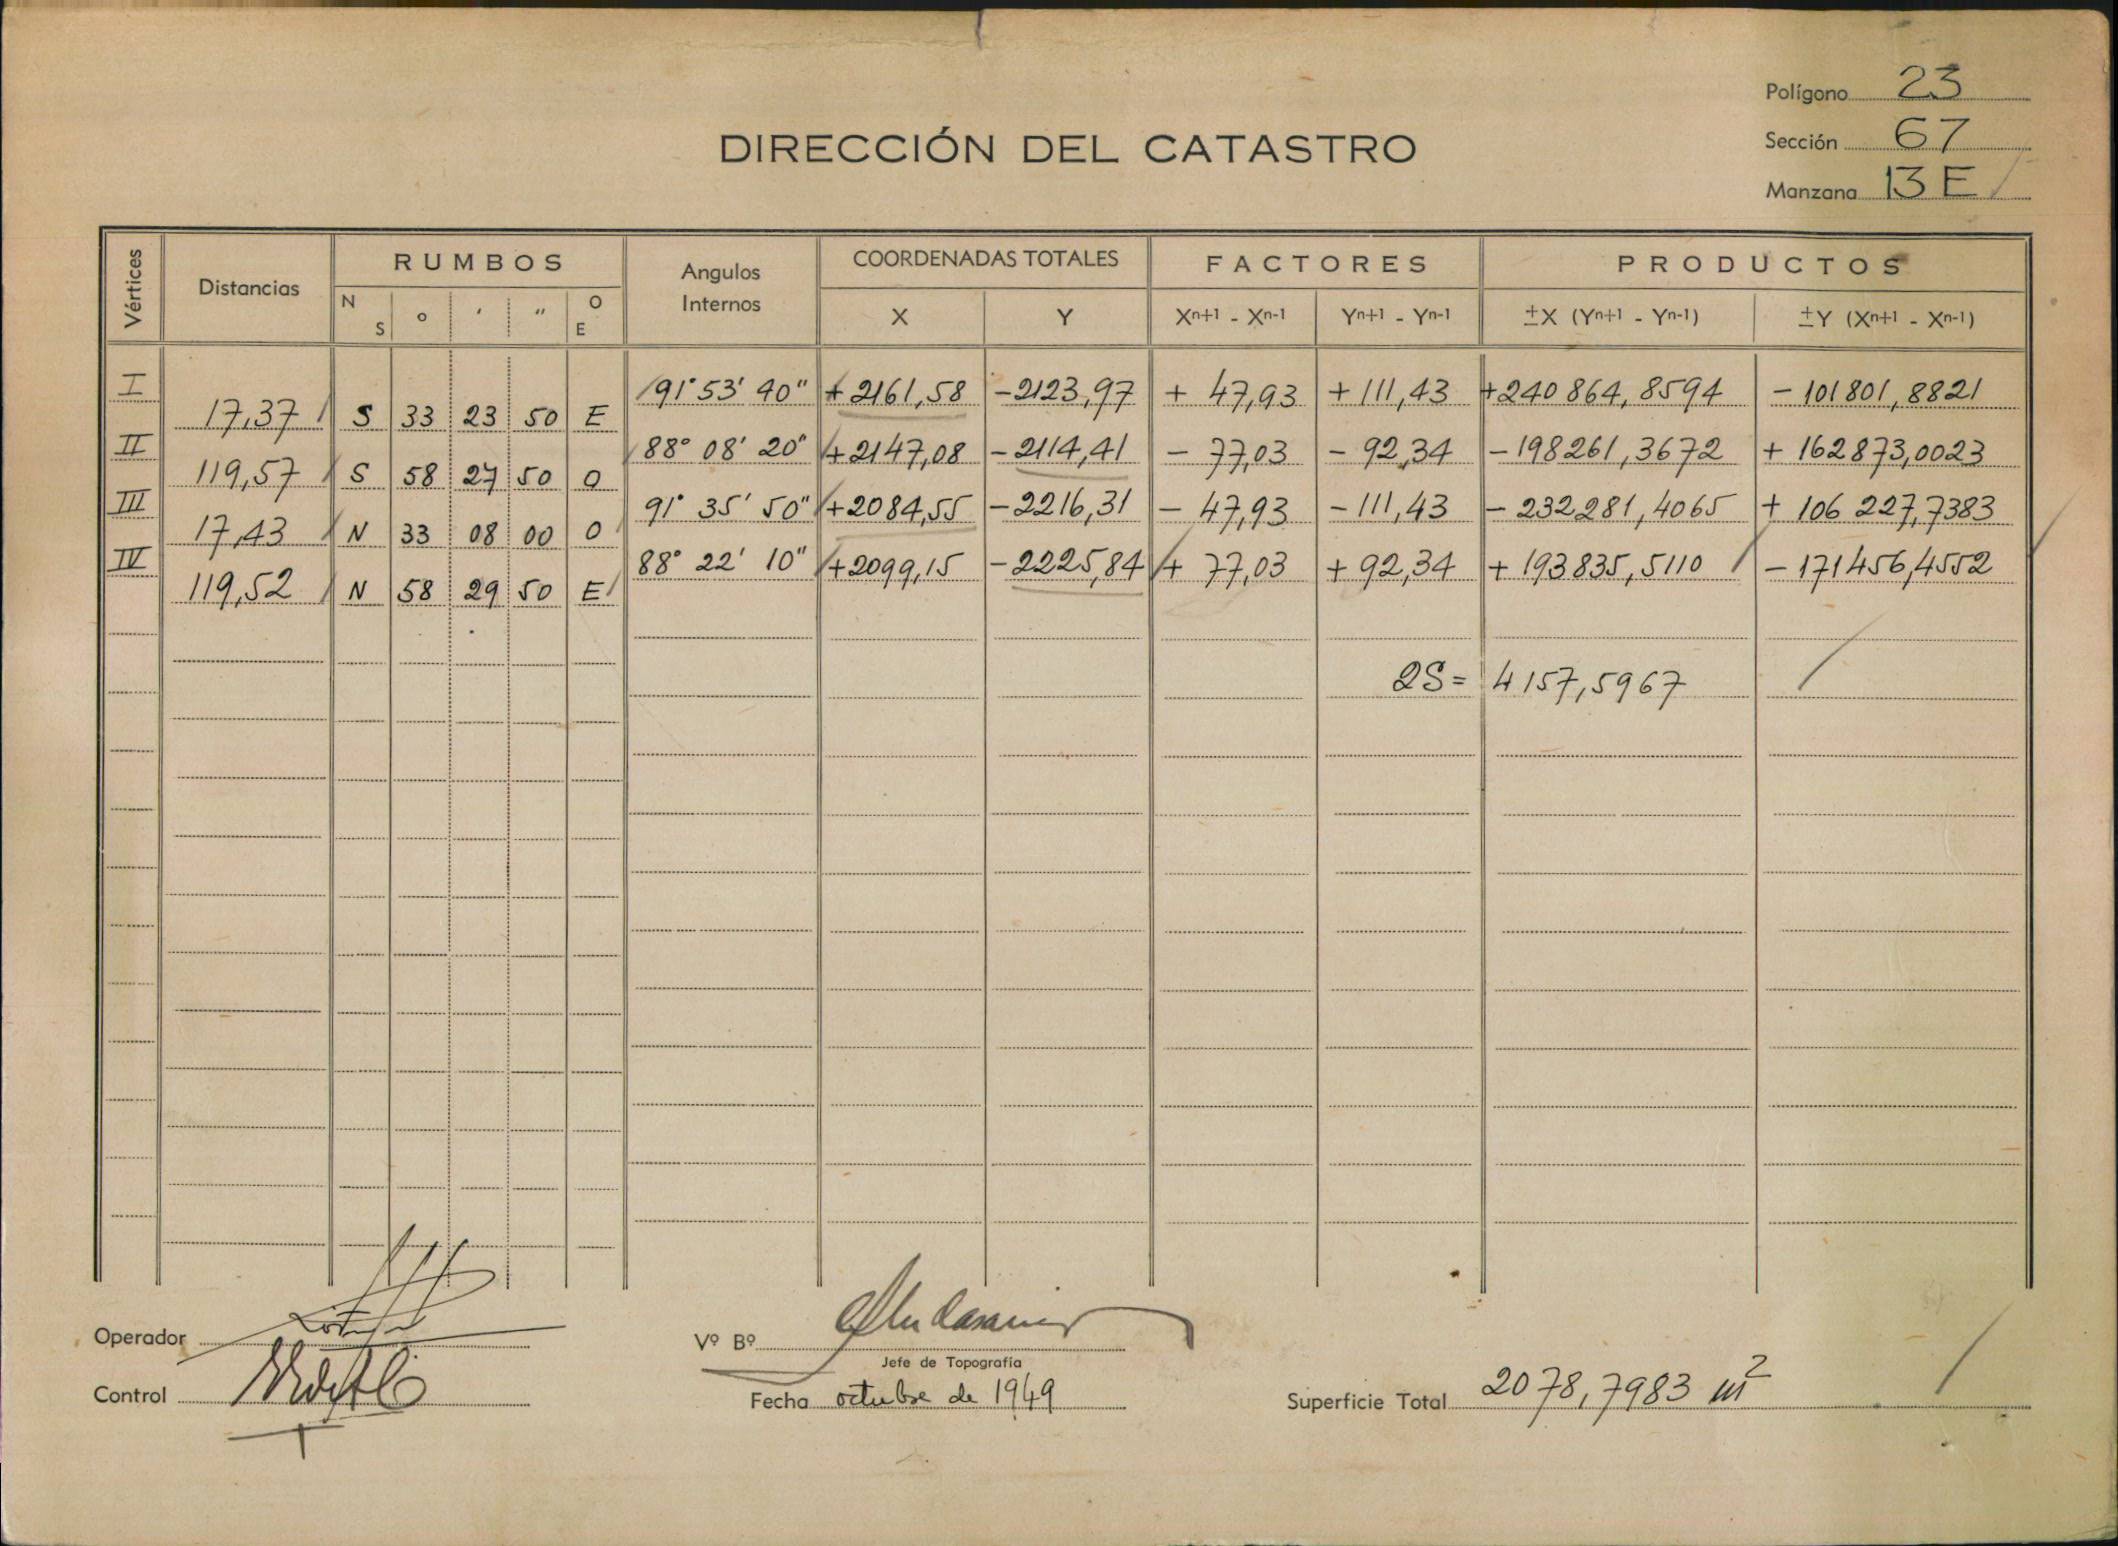 Polígono 23
DIRECCIÓN DEL CATASTRO
Sección 67
Manzana 13 E
Vértices Distancias RUMBOS Angulos Internos COORDENADAS TOTALES FACTORES PRODUCTOS
N S ° ' " O E X Y Xn+1 - Xn-1 Yn+1 - Yn-1 ±X (Yn+1 - Yn-1) ±Y (Xn+1 - Xn-1)
I 91° 53' 40" +2161,58 -2123,97 + 47,93 +111,43 +240864,8594 -101801,8821
17,37 S 33 23 50 E
II 88° 08' 20" +2147,08 -2114,41 - 77,03 - 92,34 -198261,3672 + 162873,0023
119,57 S 58 27 50 O
III 91° 35' 50" +2084,55 -2216,31 - 47,93 -111,43 - 232281,4065 + 106 227,7383
17,43 N 33 08 00 O
IV 88° 22' 10" +2099,15 -2225,84 + 77,03 + 92,34 + 193835,5110 -171456,4552
119,52 N 58 29 50 E
2S = 4157,5967
Operador
Vº Bº
Jefe de Topografía
Control
Fecha octubre de 1949
Superficie Total 2078,7983 m²